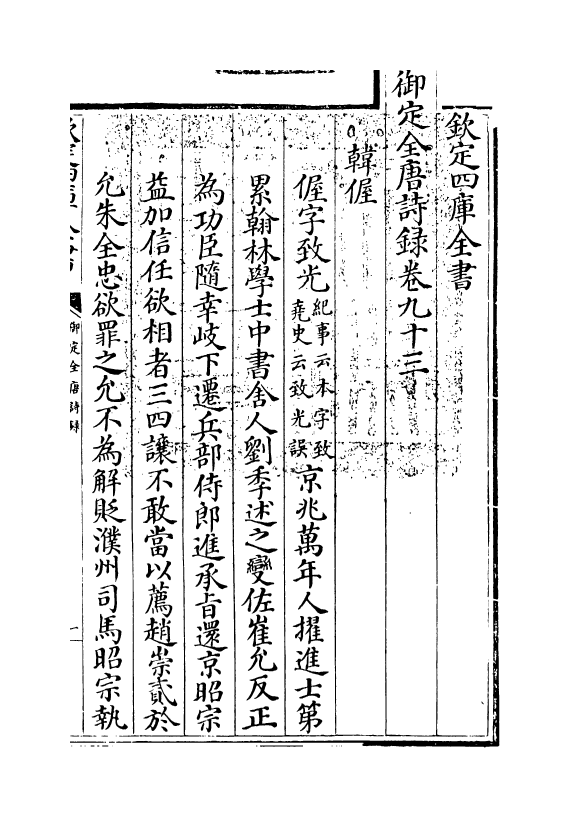 欽定四庫全書
御定全唐詩録卷九十三
韓偓
偓字致光紀事云本字致堯史云致光誤京兆萬年人擢進士第
累翰林學士中書舍人劉季述之變佐崔允反正
為功臣隨幸岐下遷兵部侍郎進承旨還京昭宗
益加信任欲相者三四讓不敢當以薦趙崇貳於
允朱全忠欲罪之允不為解貶濮州司馬昭宗執
御定全唐詩録
一